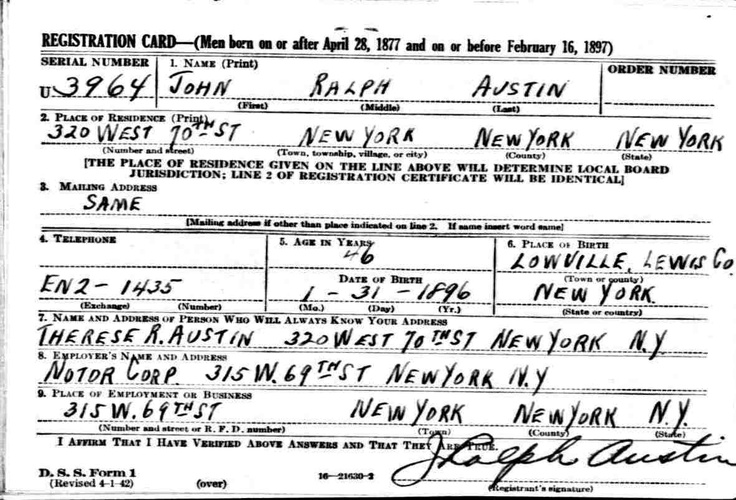 REGISTRATION CARD—(Men born on or after April 28, 1877 and on or before February 16, 1897)
SERIAL NUMBER 1. NAME (Print) ORDER NUMBER
U 3964 JOHN RALPH AUSTIN
(First) (Middle) (Last)
2. PLACE OF RESIDENCE (Print)
320 WEST 70TH ST NEW YORK NEW YORK NEW YORK
(Number and street) (Town, township, village, or city) (County) (State)
[THE PLACE OF RESIDENCE GIVEN ON THE LINE ABOVE WILL DETERMINE LOCAL BOARD
JURISDICTION; LINE 2 OF REGISTRATION CERTIFICATE WILL BE IDENTICAL]
3. MAILING ADDRESS
SAME
[Mailing address if other than place indicated on line 2. If same insert word same]
4. TELEPHONE 5. AGE IN YEARS 6. PLACE OF BIRTH
46 LOWVILLE, LEWIS CO
DATE OF BIRTH (Town or county)
EN2-1435 1-31-1896 NEW YORK
(Exchange) (Number) (Mo.) (Day) (Yr.) (State or country)
7. NAME AND ADDRESS OF PERSON WHO WILL ALWAYS KNOW YOUR ADDRESS
THERESE R. AUSTIN 320 WEST 70TH ST NEW YORK N.Y.
8. EMPLOYER'S NAME AND ADDRESS
NOTOR CORP. 315 W. 69TH ST NEW YORK N.Y
9. PLACE OF EMPLOYMENT OR BUSINESS
315 W. 69TH ST NEW YORK NEW YORK N.Y.
(Number and street or R. F. D. number) (Town) (County) (State)
I AFFIRM THAT I HAVE VERIFIED ABOVE ANSWERS AND THAT THEY ARE TRUE.
J Ralph Austin
D. S. S. Form 1
(Revised 4-1-42) (over) 16—21630-2 (Registrant's signature)